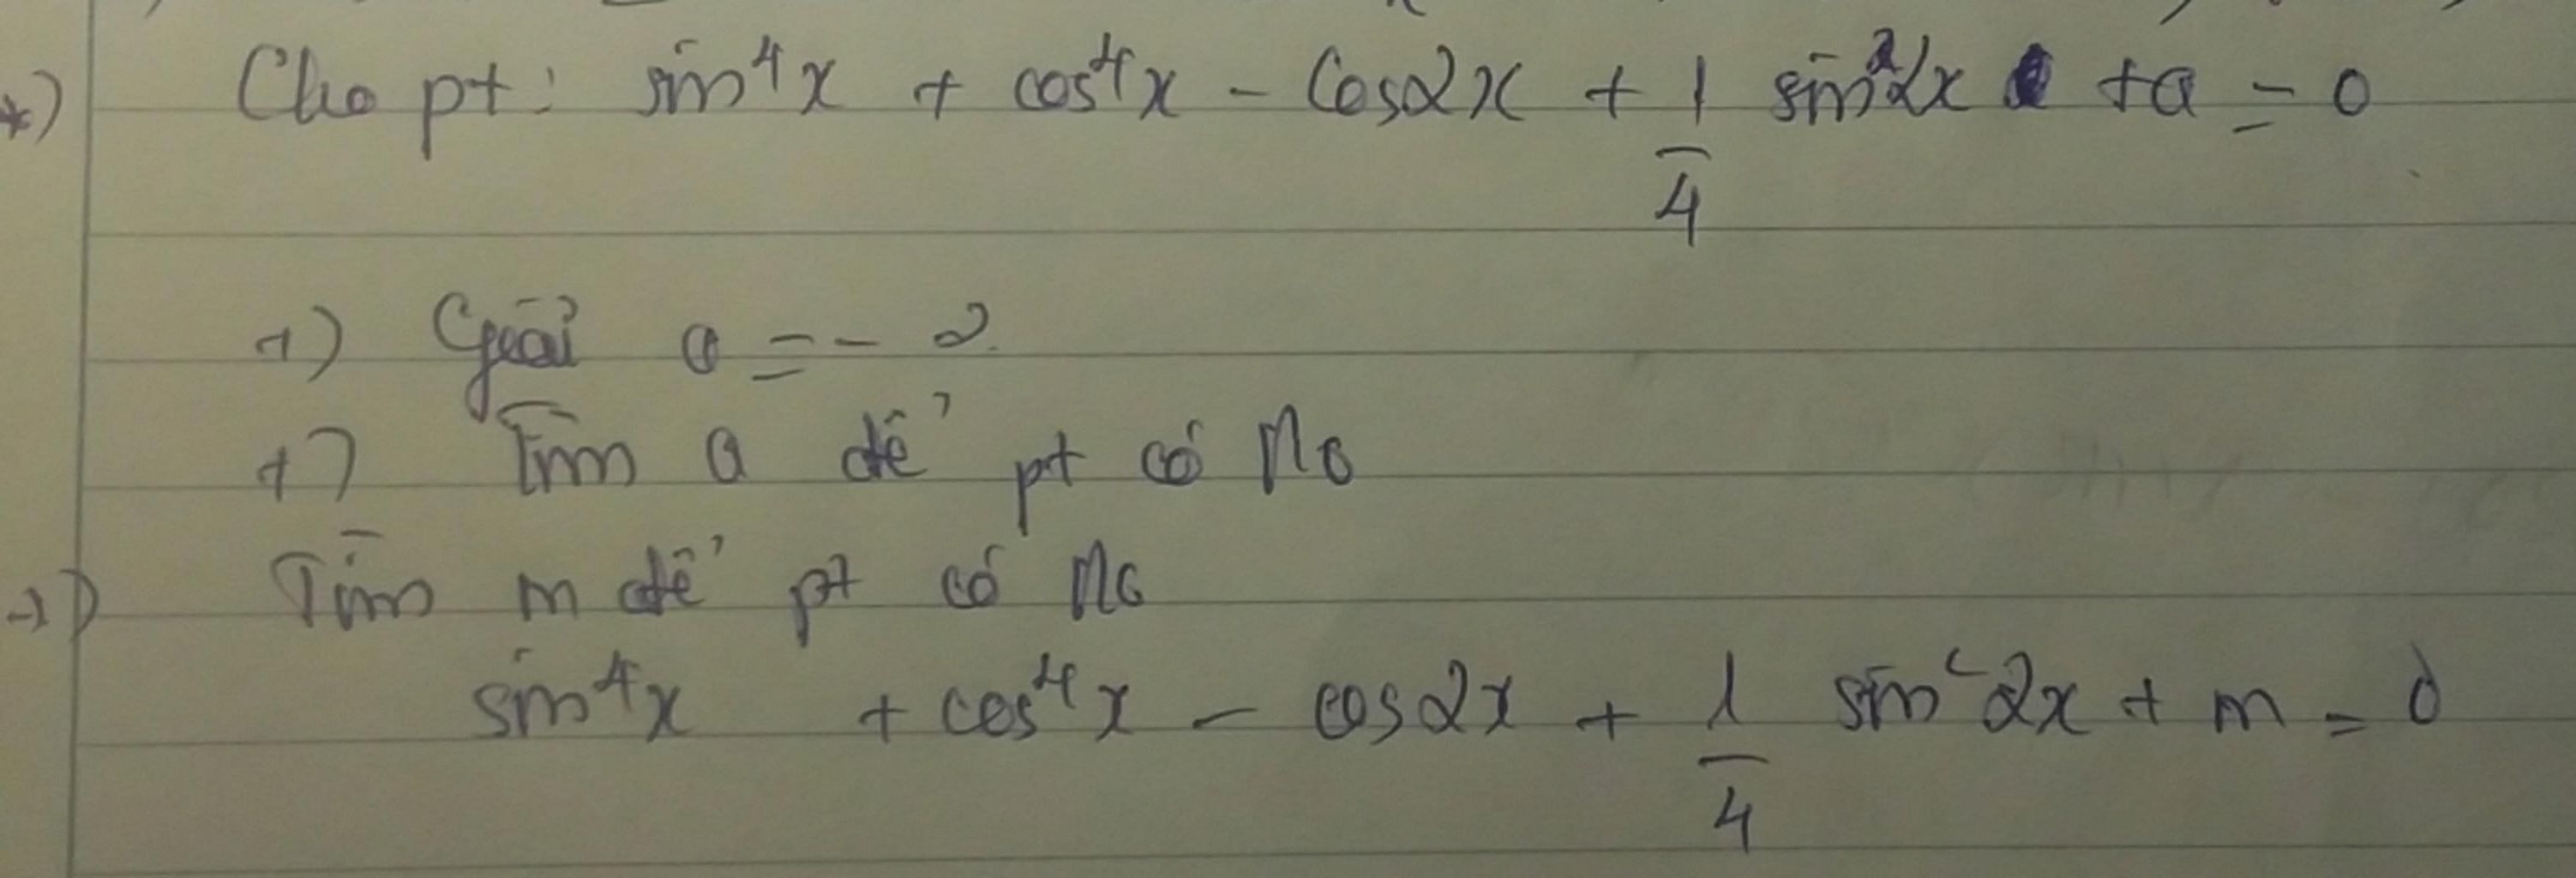 *) Cho pt: sin⁴x + cos⁴x - Cos2x + 1/4 sin²2x + a = 0
+) Giải a = - 2
+) Tìm a để pt có No
→) Tìm m để pt có No
sin⁴x + cos⁴x - cos2x + 1/4 sin²2x + m = 0